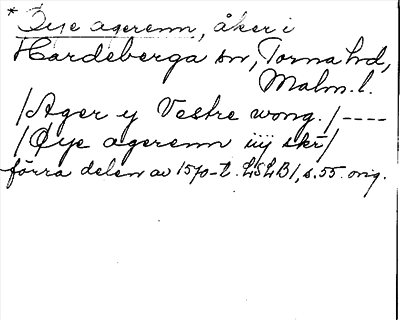 * Øye agerenn, åker i
Hardeberga sn, Torna hd,
Malm. l.
/Ager y Vestre wong./----
/Øye agerenn iiij skr/
förra delen av 1570-t. LSLB1, s. 55. orig.